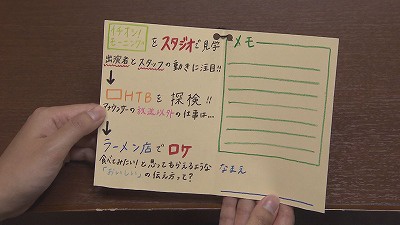 イチオシ!
モーニング を スタジオで見学
出演者とスタッフの動きに注目!!
↓
□HTBを探検!!
アナウンサーの放送以外の仕事は…
↓
ラーメン店でロケ
食べてみたい!と思ってもらえるような
「おいしい」の伝え方って?
メモ
なまえ